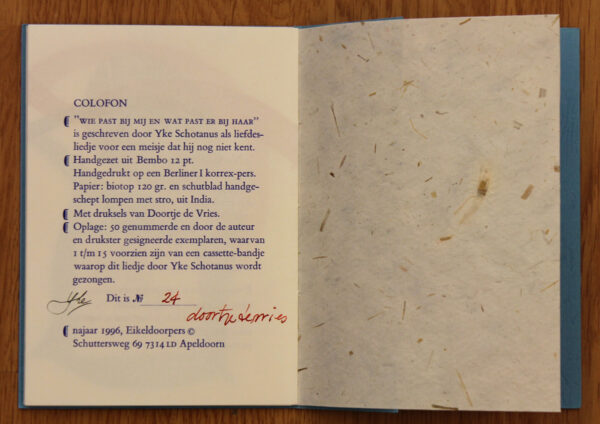 COLOFON
"WIE PAST BIJ MIJ EN WAT PAST ER BIJ HAAR"
is geschreven door Yke Schotanus als liefdes-
liedje voor een meisje dat hij nog niet kent.
Handgezet uit Bembo 12 pt.
Handgedrukt op een Berliner I korrex-pers.
Papier: biotop 120 gr. en schutblad handge-
schept lompen met stro, uit India.
Met druksels van Doortje de Vries.
Oplage: 50 genummerde en door de auteur
en drukster gesigneerde exemplaren, waarvan
1 t/m 15 voorzien zijn van een cassette-bandje
waarop dit liedje door Yke Schotanus wordt
gezongen.
Yke Dit is № 24
doortje de vries
najaar 1996, Eikeldoorpers ©
Schuttersweg 69 7314 LD Apeldoorn